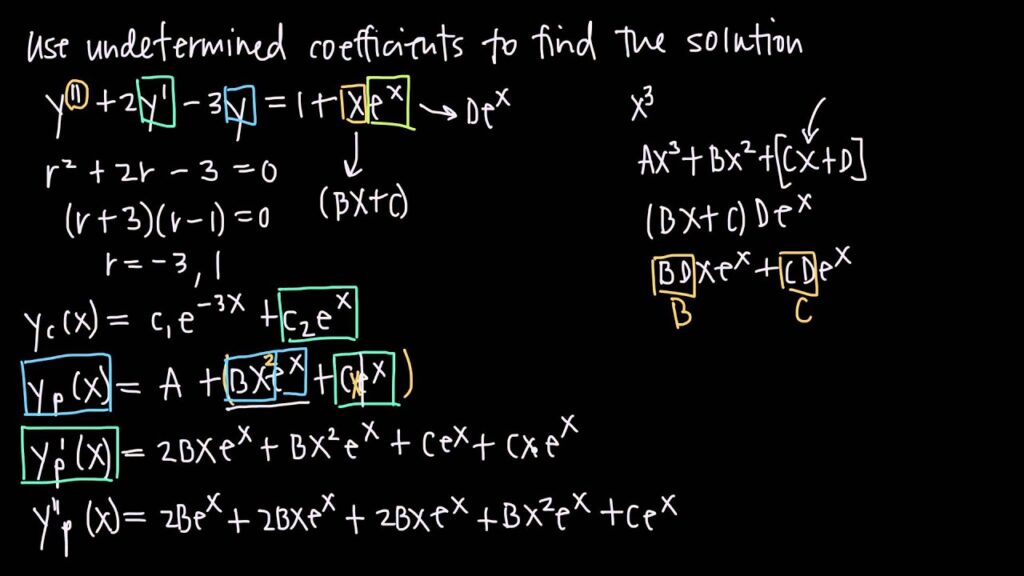 use undetermined coefficients to find the solution
y" + 2y' - 3y = 1 + xe^x → De^x
r² + 2r - 3 = 0
(r+3)(r-1) = 0
(BX+C)
r = -3, 1
Y_c(x) = c₁e^-3x + c₂e^x
Y_p(x) = A + (BX²e^x + Cxe^x)
Y_p'(x) = 2BXe^x + BX²e^x + Ce^x + Cxe^x
Y"_p(x) = 2Be^x + 2BXe^x + 2BXe^x + BX²e^x + Ce^x
X³
AX³ + BX² + [CX+D]
(BX+C) De^x
BDXe^x + CDe^x
B C